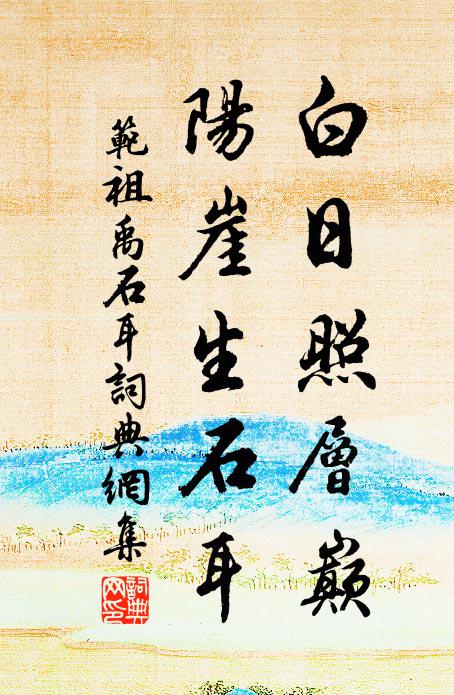 白日照層巔
陽崖生石耳
範祖禹石耳詞典網集